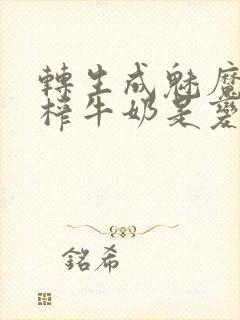 轉生成魅魔
榨牛奶是變
銘希